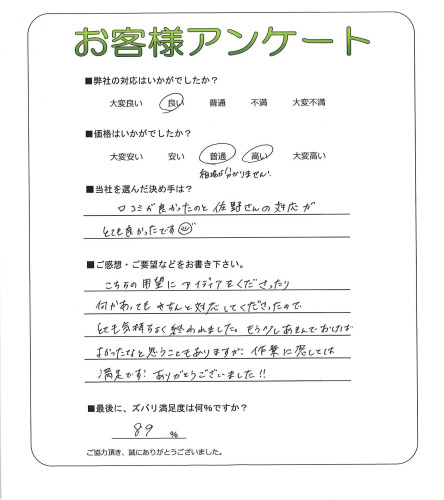 お客様アンケート
■弊社の対応はいかがでしたか?
大変良い 良い 普通 不満 大変不満
■価格はいかがでしたか?
大変安い 安い 普通 高い 大変高い
相場が分かりません.
■当社を選んだ決め手は?
口コミが良かったのと佐野さんの対応が
とても良かったです
■ご感想・ご要望などをお書き下さい。
こちらの用望にアイディアをくださったり
何かあってもきちんと対応してくださったので
とても気持ちよく終われました。もう少しあまんでおけば
よかったなと思うこともありますが、作業に応しては
満足です!ありがとうございました!!
■最後に、ズバリ満足度は何%ですか?
89 %
ご協力頂き、誠にありがとうございました。